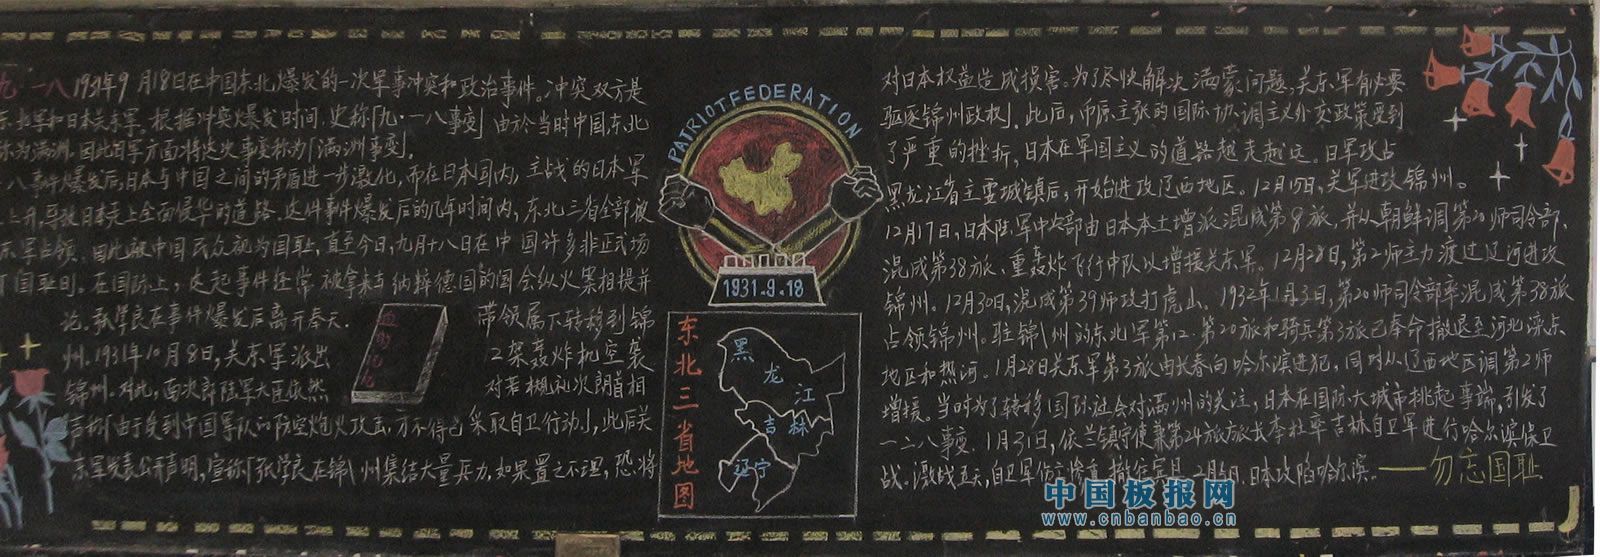 九·一八1931年9月18日在中国东北爆发的一次军事冲突和政治事件。冲突双方是
东北军和日本关东军。根据冲突爆发时间,史称「九·一八事变」由於当时中国东北
称为满洲,因此日军方面将这次事变称为「满洲事变」。
八事件爆发后,日本与中国之间的矛盾进一步激化,而在日本国内,主战的日本军
上升,导致日本走上全面侵华的道路。这件事件爆发后的几年时间内,东北三省全部被
东军占领,因此被中国民众视为国耻,直至今日,九月十八日在中国许多非正式场
国耻日。在国际上,这起事件经常被拿来与纳粹德国的国会纵火案相提并
论。张学良在事件爆发后离开奉天,带领属下转移到锦
州。1931年10月8日,关东军派出2架轰炸机空袭
锦州。对此,南次郎陆军大臣依然对若槻礼次朗首相
声称「由于受到中国军队的防空炮火攻击,才不得已采取自卫行动」,此后关
东军发表公开声明,宣称「张学良在锦州集结大量兵力,如果置之不理,恐将
PATRIOTFEDERATION
1931.9.18
东北三省地图
黑龙江
吉林
辽宁
对日本权益造成损害。为了尽快解决满蒙问题,关东军有必要
驱逐锦州政权」。此后,币原主张的国际协调主义外交政策受到
了严重的挫折,日本在军国主义的道路越走越远。日军攻占
黑龙江省主要城镇后,开始进攻辽西地区。12月15日,关军进攻锦州。
12月17日,日本陆军中央部由日本本土增派混成第8旅,并从朝鲜调第20师司令部,
混成第38旅、重轰炸飞行中队以增援关东军。12月28日,第2师主力渡过辽河进攻
锦州。12月30日,混成第39师攻打虎山。1932年1月3日,第20师司令部率混成第38旅
占领锦州。驻锦州的东北军第12、第20旅和骑兵第3旅已奉命撤退至河北滦东
地区和热河。1月28日关东军第3旅由长春向哈尔滨进犯,同时从辽西地区调第2师
增援。当时为了转移国际社会对满州的关注,日本在国际大城市挑起事端,引发了
一二八事变。1月31日,依兰镇守使兼第24旅旅长李杜率吉林自卫军进行哈尔滨保卫
战。激战五天,自卫军伤亡惨重,撤往宾县。2月5日,日本攻陷哈尔滨。——勿忘国耻
中国板报网
www.cnbanbao.cn